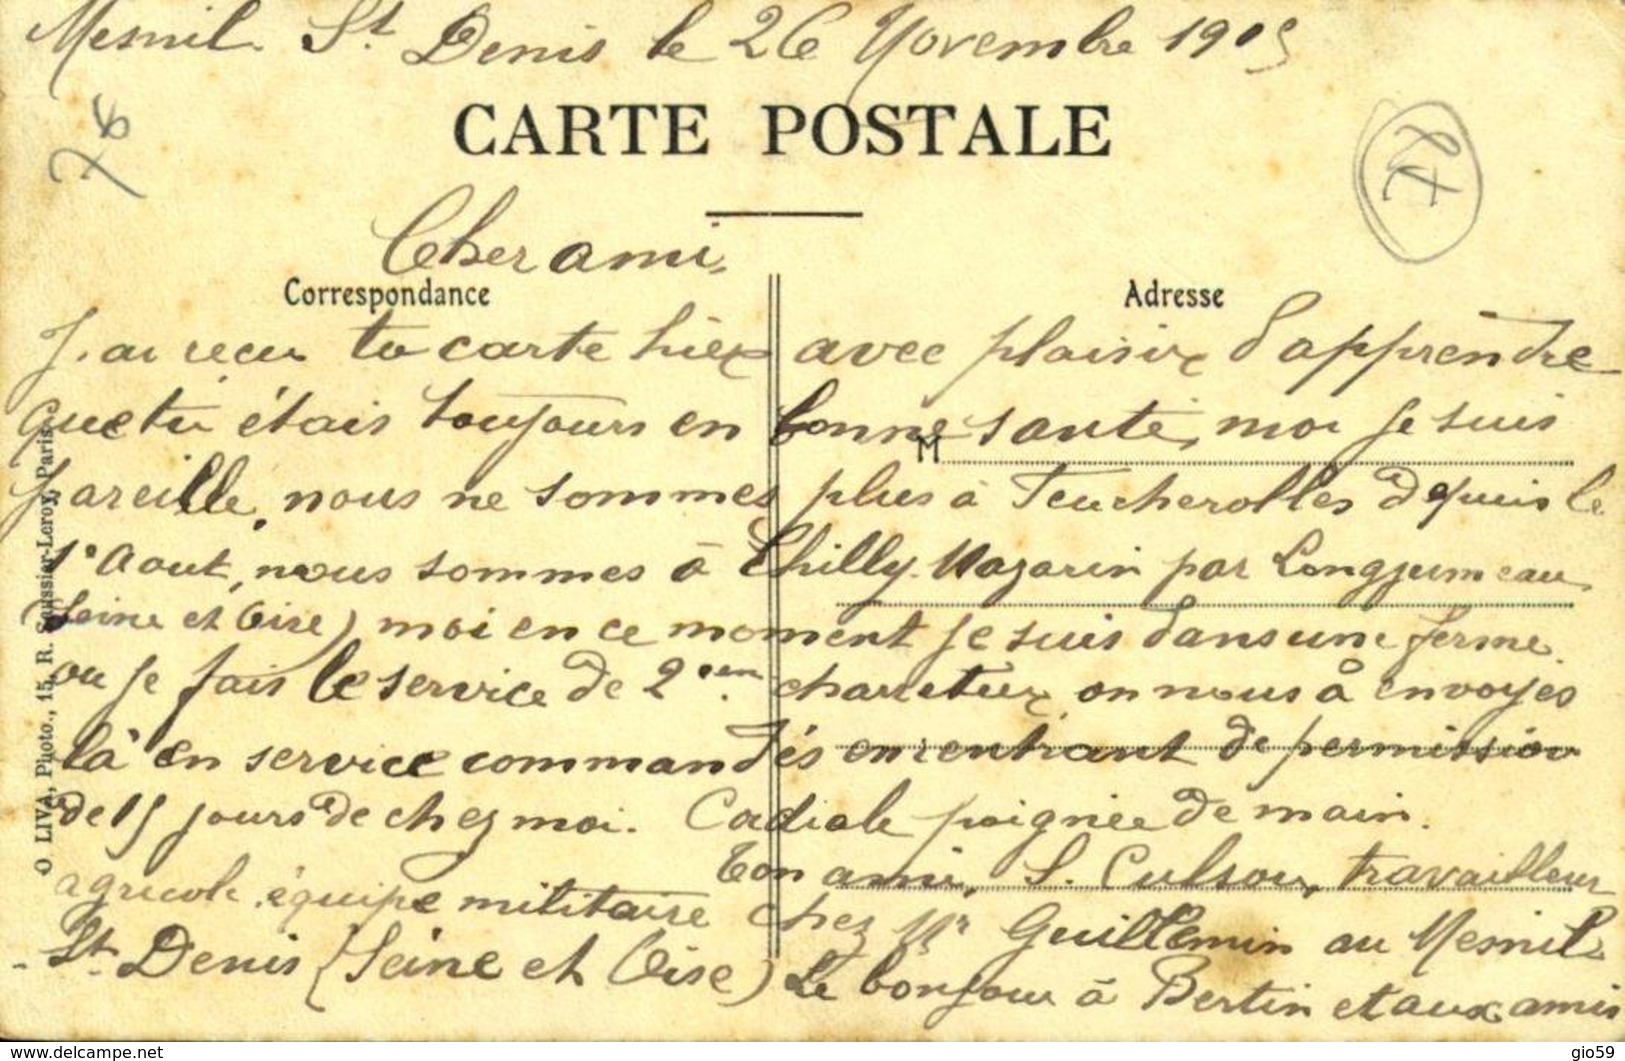 Mesnil St Denis le 26 Novembre 190
78
CARTE POSTALE
Cher ami,
Correspondance
Adresse
J.ai recu ta carte hier avec plaisir d'apprendre
que tu étais toujours en bonne santé, moi je suis
M
pareille, nous ne sommes plus à Feucherolles depuis le
1° Aout, nous sommes à Chilly-Mazarin par Longjumeau
Seine et Oise) moi en ce moment je suis dans une ferme.
ou je fais le service de 2em charretier on nous à envoyes
là en service commandés en rentrant de permission
de 15 jours de chez moi. Cadiale poignée de main.
Ton ami, travailleur
agricole équipe militaire chez Mr Guillemin au Mesnil
St Denis (Seine et Oise) Le bonjour à Bertin et aux amis
O LIVA, Photo., 15, R. Saussier-Leroy, Paris
gio59